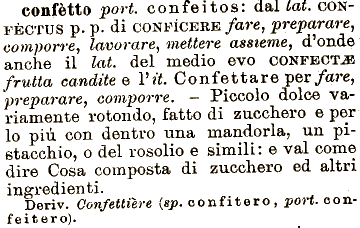 confètto port. confeitos: dal lat. CON-
FÈCTUS p. p. di CONFÍCERE fare, preparare,
comporre, lavorare, mettere assieme, d'onde
anche il lat. del medio evo CONFECTÆ
frutta candite e l'it. Confettare per fare,
preparare, comporre. – Piccolo dolce va-
riamente rotondo, fatto di zucchero e per
lo piú con dentro una mandorla, un pi-
stacchio, o del rosolio e simili: e val come
dire Cosa composta di zucchero ed altri
ingredienti.
Deriv. Confettière (sp. confitero, port. con-
feitero).